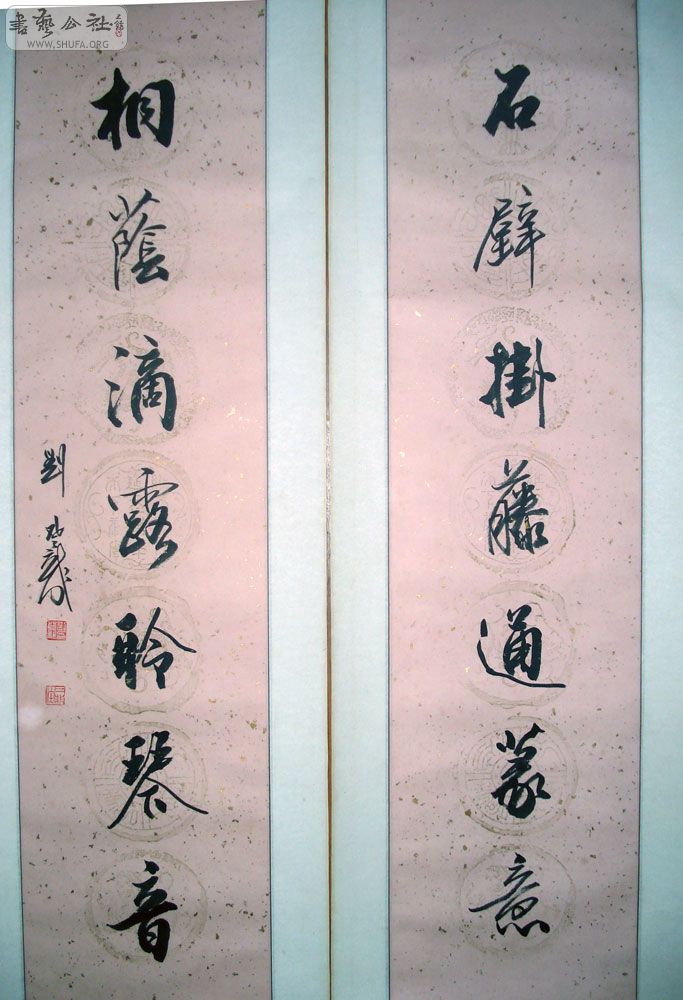 書藝公社
WWW.SHUFA.ORG
石壁掛藤通篆意
桐蔭滴露聆琴音
劉